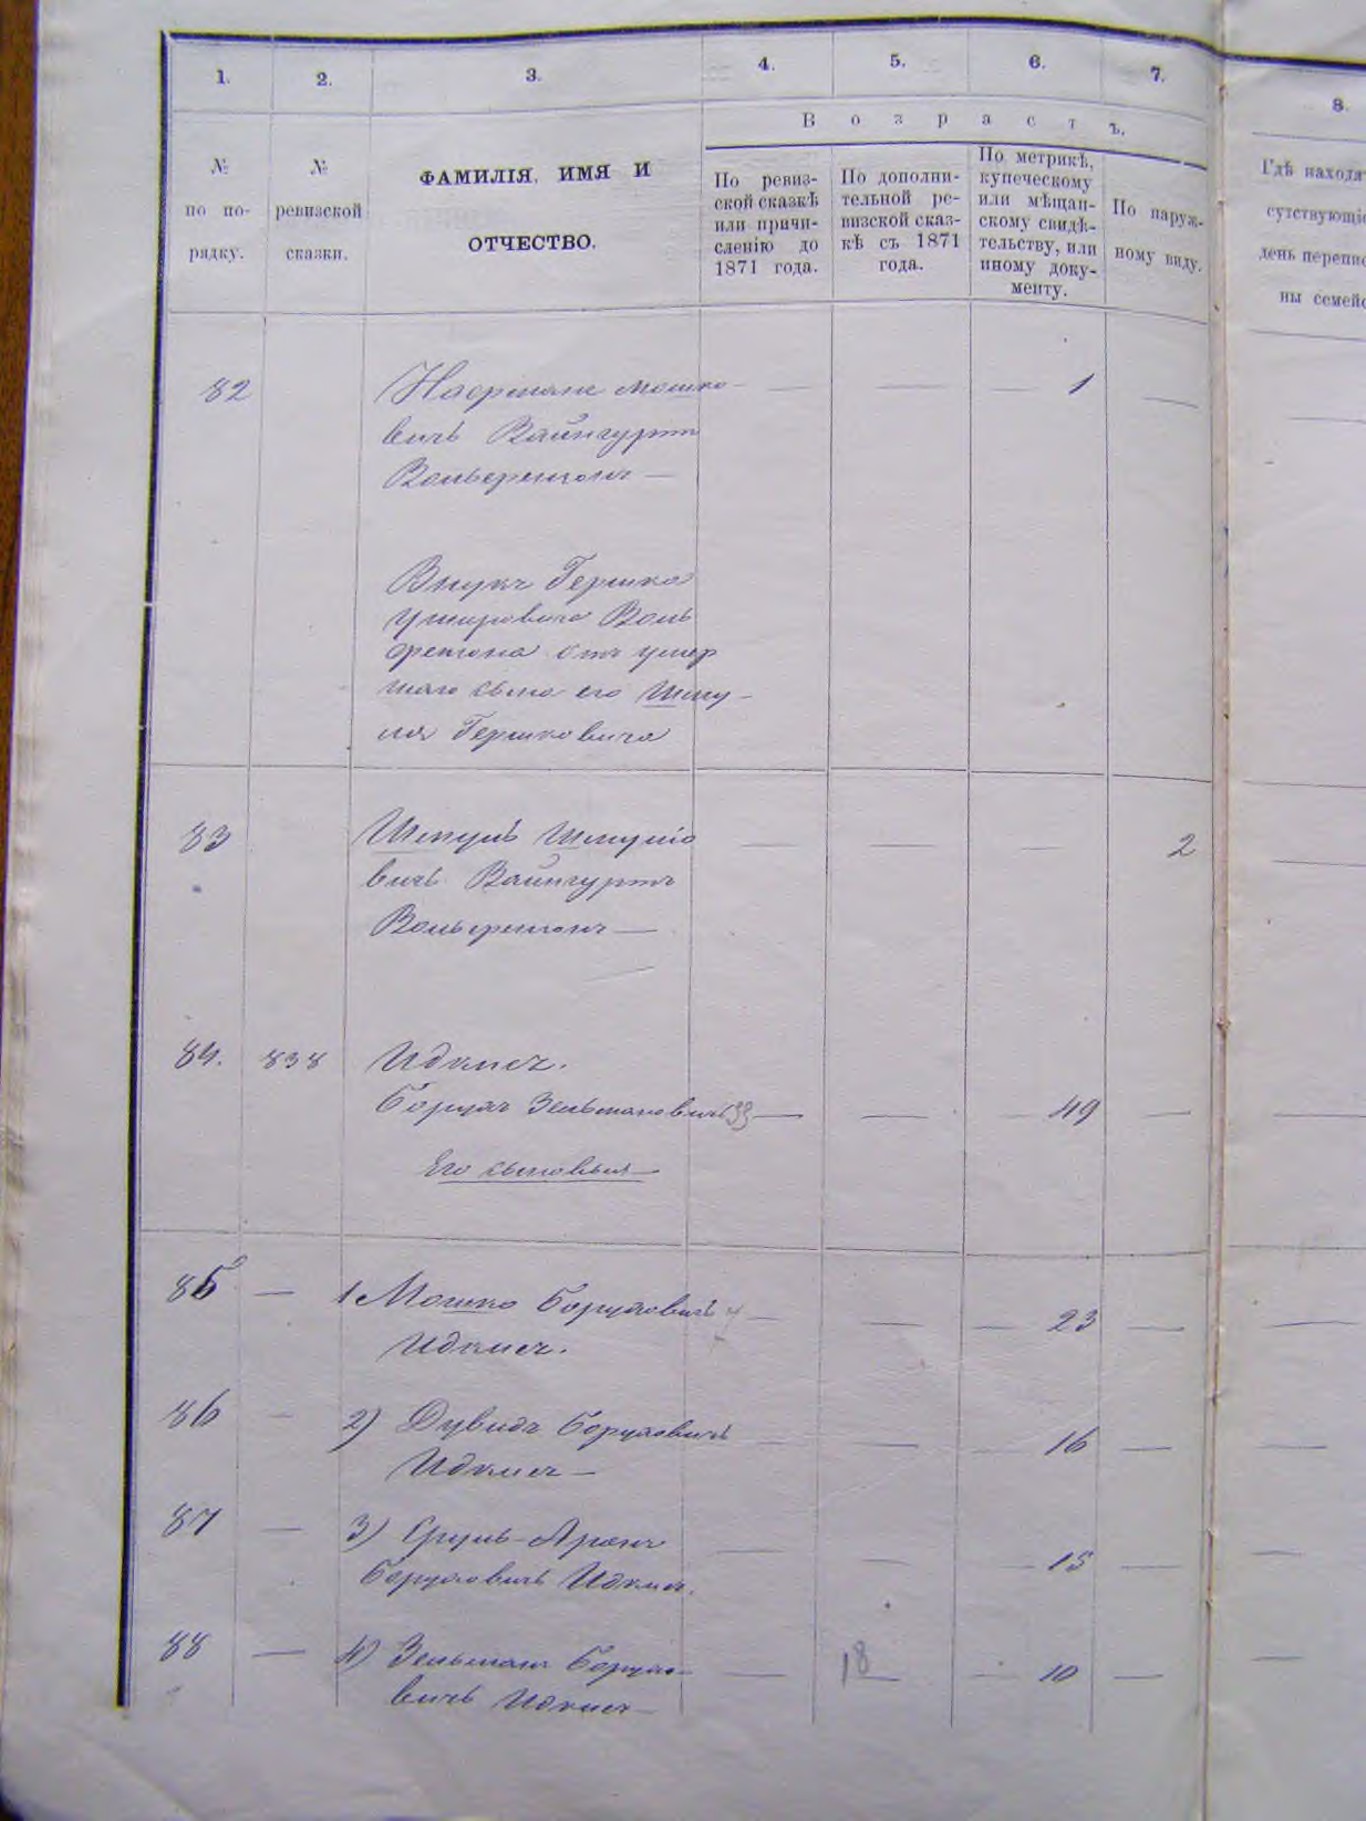 1.
2.
3.
4.
5.
6.
7.
8.
Возрастъ.
№ по по-
рядку.
№
ревизской
сказки.
ФАМИЛІЯ, ИМЯ И
ОТЧЕСТВО.
По ревиз-
ской сказкѣ
или причи-
сленію до
1871 года.
По дополни-
тельной ре-
визской сказ-
кѣ съ 1871
года.
По метрикѣ,
купеческому
или мѣщан-
скому свидѣ-
тельству, или
иному доку-
менту.
По наруж-
ному виду.
Гдѣ находят
сутствующі
день перепис
ны семей
82 Мошко- — — — 1 —
вичъ Вайнгуртъ
Вольфензонъ —
Внукъ Гершка
Вольф
отъ умер
шаго сына его Шму-
ля Гершковича
83 Шмулё — — — 2
вичъ Вайнгуртъ
Вольфензонъ —
84. 838 Идкисъ.
Борухъ Зельмановичъ 33 — — — 49 —
Его сыновья —
85 — 1 Мошко Боруховичъ 4 — — — 23 —
Идкисъ.
86 — 2) Дувидъ Боруховичъ — — — 16 —
Идкисъ —
87 — 3) Сруль-Аронъ — — — 15 —
Боруховичъ Идкисъ.
88 — 4) Зельманъ Борухо- — 18 — — 10 —
вичъ Идкисъ —